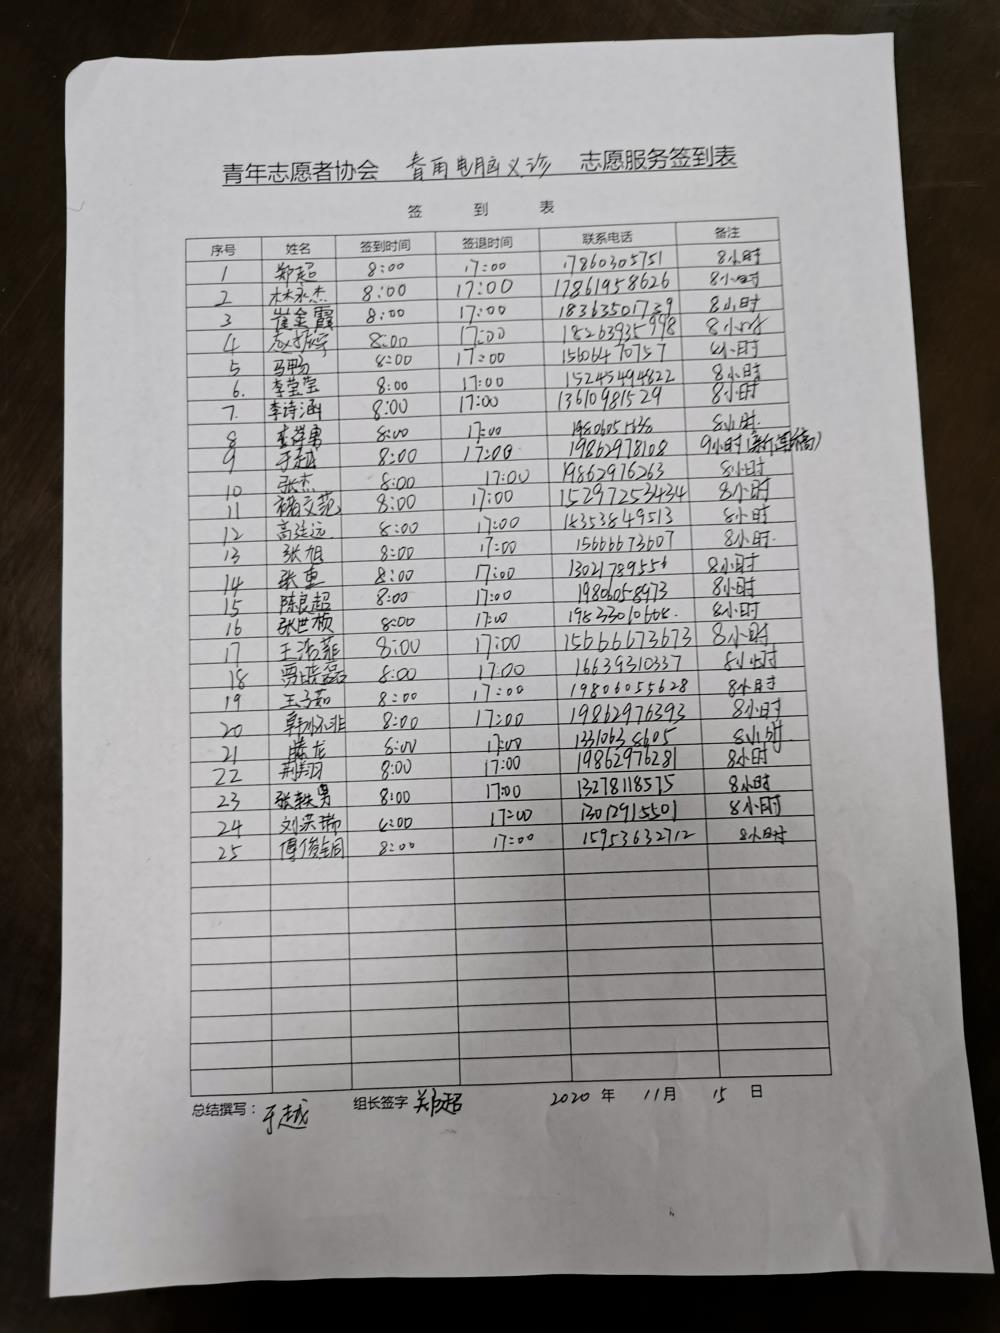 青年志愿者协会 青甬电脑义诊 志愿服务签到表
签 到 表
序号 姓名 签到时间 签退时间 联系电话 备注
1 郑超 8:00 17:00 17860305751 8小时
2 林永杰 8:00 17:00 17861958626 8小时
3 崔金霞 8:00 17:00 18363501739 8小时
4 赵振宇 8:00 17:00 18263935998 8小时
5 马畅 8:00 17:00 15606470757 8小时
6. 李莹莹 8:00 17:00 15245494822 8小时
7. 李诗涵 8:00 17:00 13610981529 8小时
8 8:00 17:00 19806055638 8小时.
9 于越 8:00 17:00 19862978108 9小时(新算稿)
10 张杰 8:00 17:00 19862976263 8小时
11 褚文苑 8:00 17:00 15297253434 8小时
12 高延远 8:00 17:00 18353849513 8小时
13 张旭 8:00 17:00 15666673607 8小时.
14 张重 8:00 17:00 13021789556 8小时
15 陈良超 8:00 17:00 19806058973 8小时
16 张世桢 8:00 17:00 19833010608. 8小时
17 王浩菲 8:00 17:00 15666673673 8小时
18 贾晓磊 8:00 17:00 16639310337 8小时
19 王子茹 8:00 17:00 19806055628 8小时
20 韩怀非 8:00 17:00 19862976393 8小时
21 滕龙 8:00 17:00 13310638605 8小时
22 荆翔 8:00 17:00 19862976281 8小时
23 张轶男 8:00 17:00 13278118575 8小时
24 刘洪瑞 8:00 17:00 13012915501 8小时
25 傅俊铜 8:00 17:00 15953632712 8小时
总结撰写： 于越 组长签字 郑超 2020 年 11 月 15 日